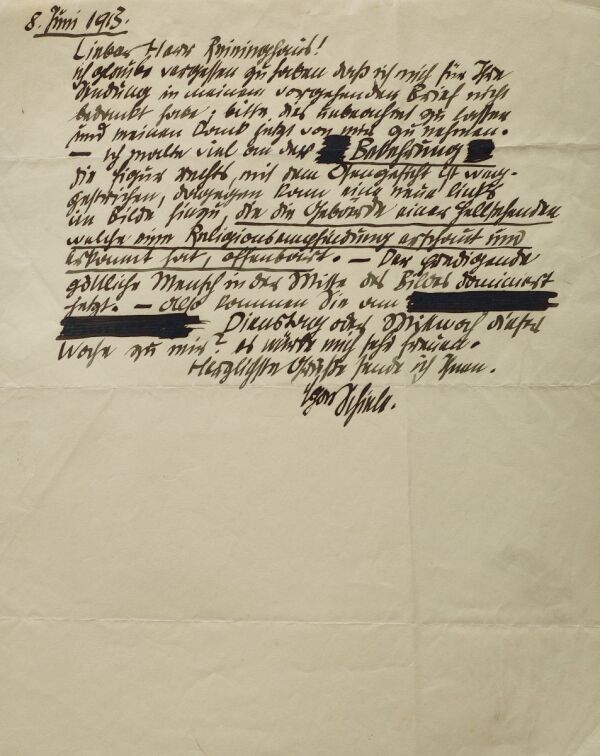 8. Juni 1913.
Lieber Herr Reininghaus!
ich glaube vergessen zu haben daß ich mich für Ihre
Sendung in meinem vorgehenden Brief nicht
bedankt habe, bitte dies unbeachtet zu lassen
und meinen Dank jetzt von mir zu nehmen.
— ich malte viel an der Bekehrung
die Figur rechts mit dem Gesicht ist weg-
gestrichen, dagegen kam eine neue links
im Bilde hinzu, die die Gebärde einer Hellsehenden
welche eine Religionsempfindung erschaut und
erkannt hat, offenbart. — Der predigende
göttliche Mensch in der Mitte des Bildes dominiert
jetzt. — also kommen Sie am
Dienstag oder Mittwoch dieser
Woche zu mir? es würde mich sehr freuen.
Herzlichste Grüße sende ich Ihnen.
Egon Schiele.